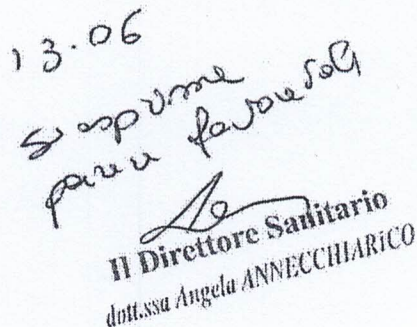 13.06
si esprime
parere favorevole
Il Direttore Sanitario
dott.ssa Angela ANNECCHIARICO